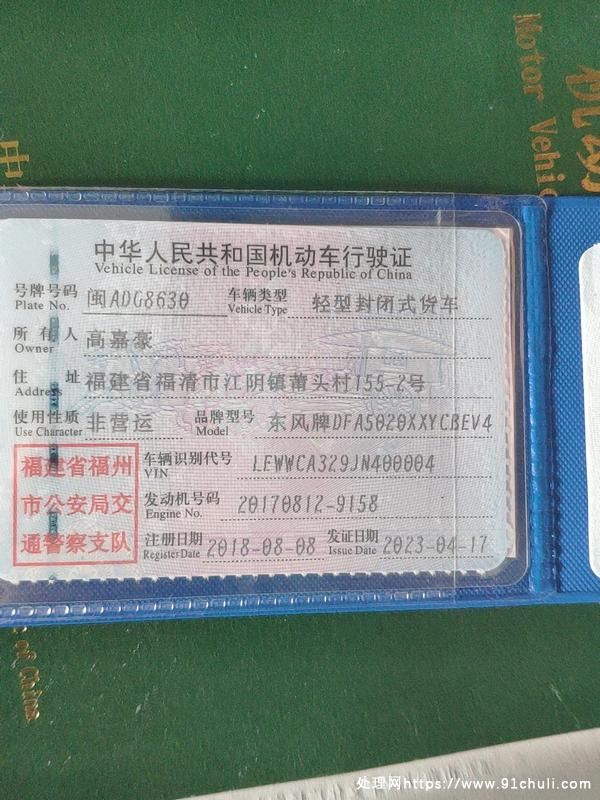 机动
Motor Vehic
中
中华人民共和国机动车行驶证
Vehicle License of the People's Republic of China
号牌号码 闽ADG8630 车辆类型 轻型封闭式货车
Plate No. Vehicle Type
所有人 高嘉豪
Owner
住址 福建省福清市江阴镇莆头村155-2号
Address
使用性质 非营运 品牌型号 东风牌DFA5020XXYCBEV4
Use Character Model
福建省福州
市公安局交
通警察支队
车辆识别代号 LEWWCA329JN400004
VIN
发动机号码 20170812-9158
Engine No.
注册日期 2018-08-08 发证日期 2023-04-17
Register Date Issue Date
of China
处理网https://www.91chuli.com/